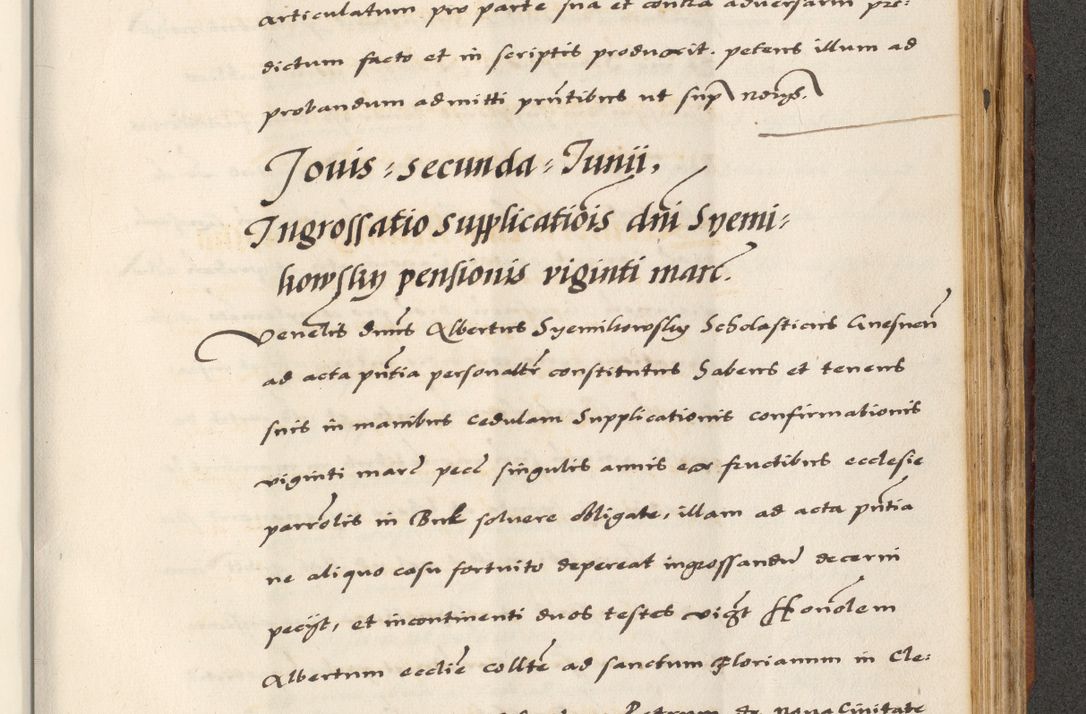 articulatum pro parte sua et contra adversarii pre:
dictum facto et in scriptis produxit. petens illum ad
probandum admitti pn̄tibus ut sup
Jouis : secunda : Junii,
Ingrossatio supplicatiōis dn̄i Syemi:
kowsky pensionis viginti marc̄.
Venēlis dn̄us Albertus Syemikowsky Scholasticus Gnesneñ
ad acta pn̄tia personalr̄ constitutus habens et tenens
suis in manibus cedulam supplicationis confirmationis
viginti marc̄ pecc̄ singulis annis ex fructibus ecclesie
parrōlis in Buk soluere obligate, illam ad acta pn̄tia
ne aliquo casu fortuito depereat ingrossandū decerni
pecijt, et incontinenti duos testes vigt̄ Honōlem
Albertum ecclīe collt̄e ad sanctum Florianum in Cle:
Petrum de Noua Ciuitate